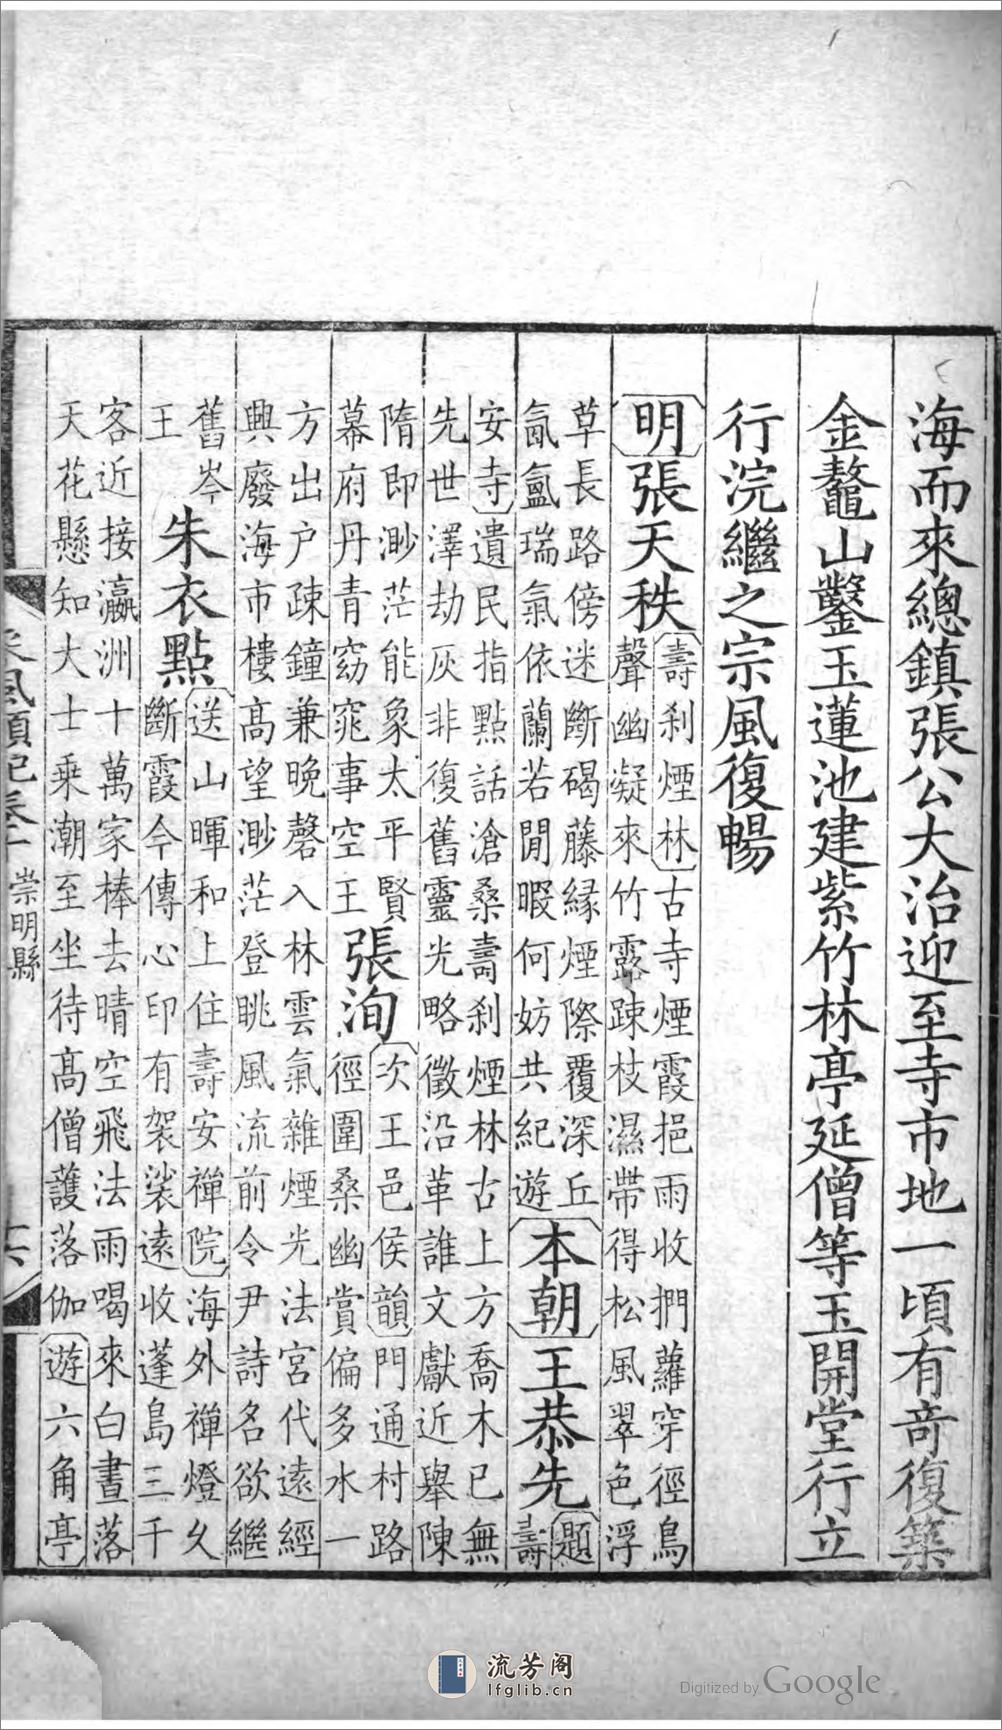 海而來總鎮張公大治迎至寺市地一頃有奇復築
金鼇山鑿玉蓮池建紫竹林亭延僧等玉開堂行立
行浣繼之宗風復暢
明張天秩
壽刹煙林古寺煙霞挹雨收捫蘿穿徑鳥
聲幽凝來竹露踈枝濕帶得松風翠色浮
草長路傍迷斷碣藤緣煙際覆深丘
氤氳瑞氣依蘭若閒暇何妨共紀遊
本朝王恭先
題
壽
安寺遺民指點話滄桑壽刹煙林古上方喬木已無
先世澤劫灰非復舊靈光略徵沿革誰文獻近舉陳
隋即渺茫能象太平賢
幕府丹青窈窕事空王
張洵
次王邑侯韻門通村路
徑圍桑幽賞偏多水一
方出户踈鐘兼晚磬入林雲氣雜煙光法宮代遠經
興廢海市樓高望渺茫登眺風流前令尹詩名欲繼
舊岑
王
朱衣點
送山暉和上住壽安禪院海外禪燈久
斷霞今傳心印有袈裟遠收蓬島三千
客近接瀛洲十萬家棒去晴空飛法雨喝來白晝落
天花懸知大士乘潮至坐待高僧護落伽遊六角亭
崇明縣
流芳阁
lfglib.cn
Digitized by Google